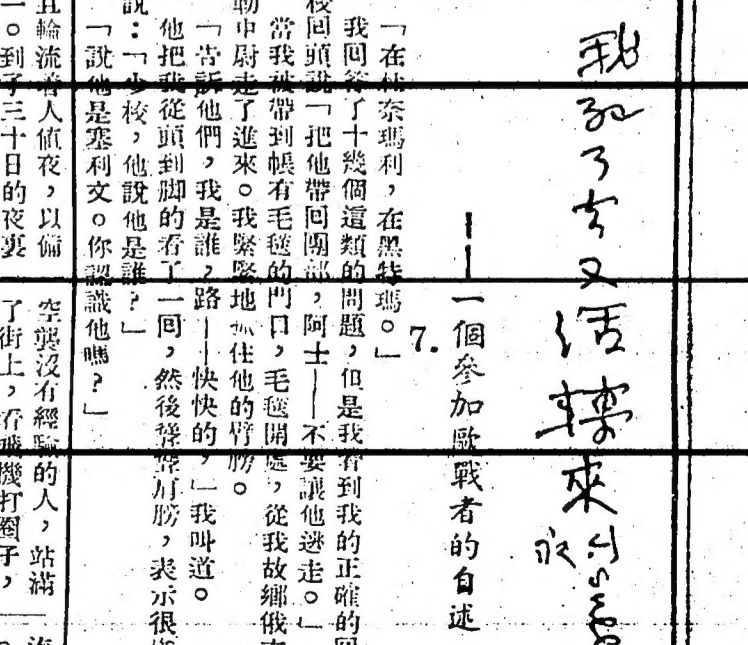 我死了去又活轉來
——一個參加歐戰者的自述
7.
「在林奈瑪利,在黑特瑪。」
我回答了十幾個這類的問題,但是我看到我的正確的回
校回頭說「把他帶回團部,阿士——不要讓他逃走。」
當我被帶到帳有毛毯的門口,毛毯開處,從我故鄉俄
勒中尉走了進來。我緊緊地抓住他的臂膀。
「告訴他們,我是誰,路——快快的,」我叫道。
他把我從頭到脚的看了一回,然後聳聳肩膀,表示很
說:「少校,他說他是誰?」
「說他是塞利文。你認識他嗎?」
且輪流着人偵夜,以備
一。到了三十日的夜裏
空襲沒有經驗的人,站滿
了街上,看飛機打圈子,